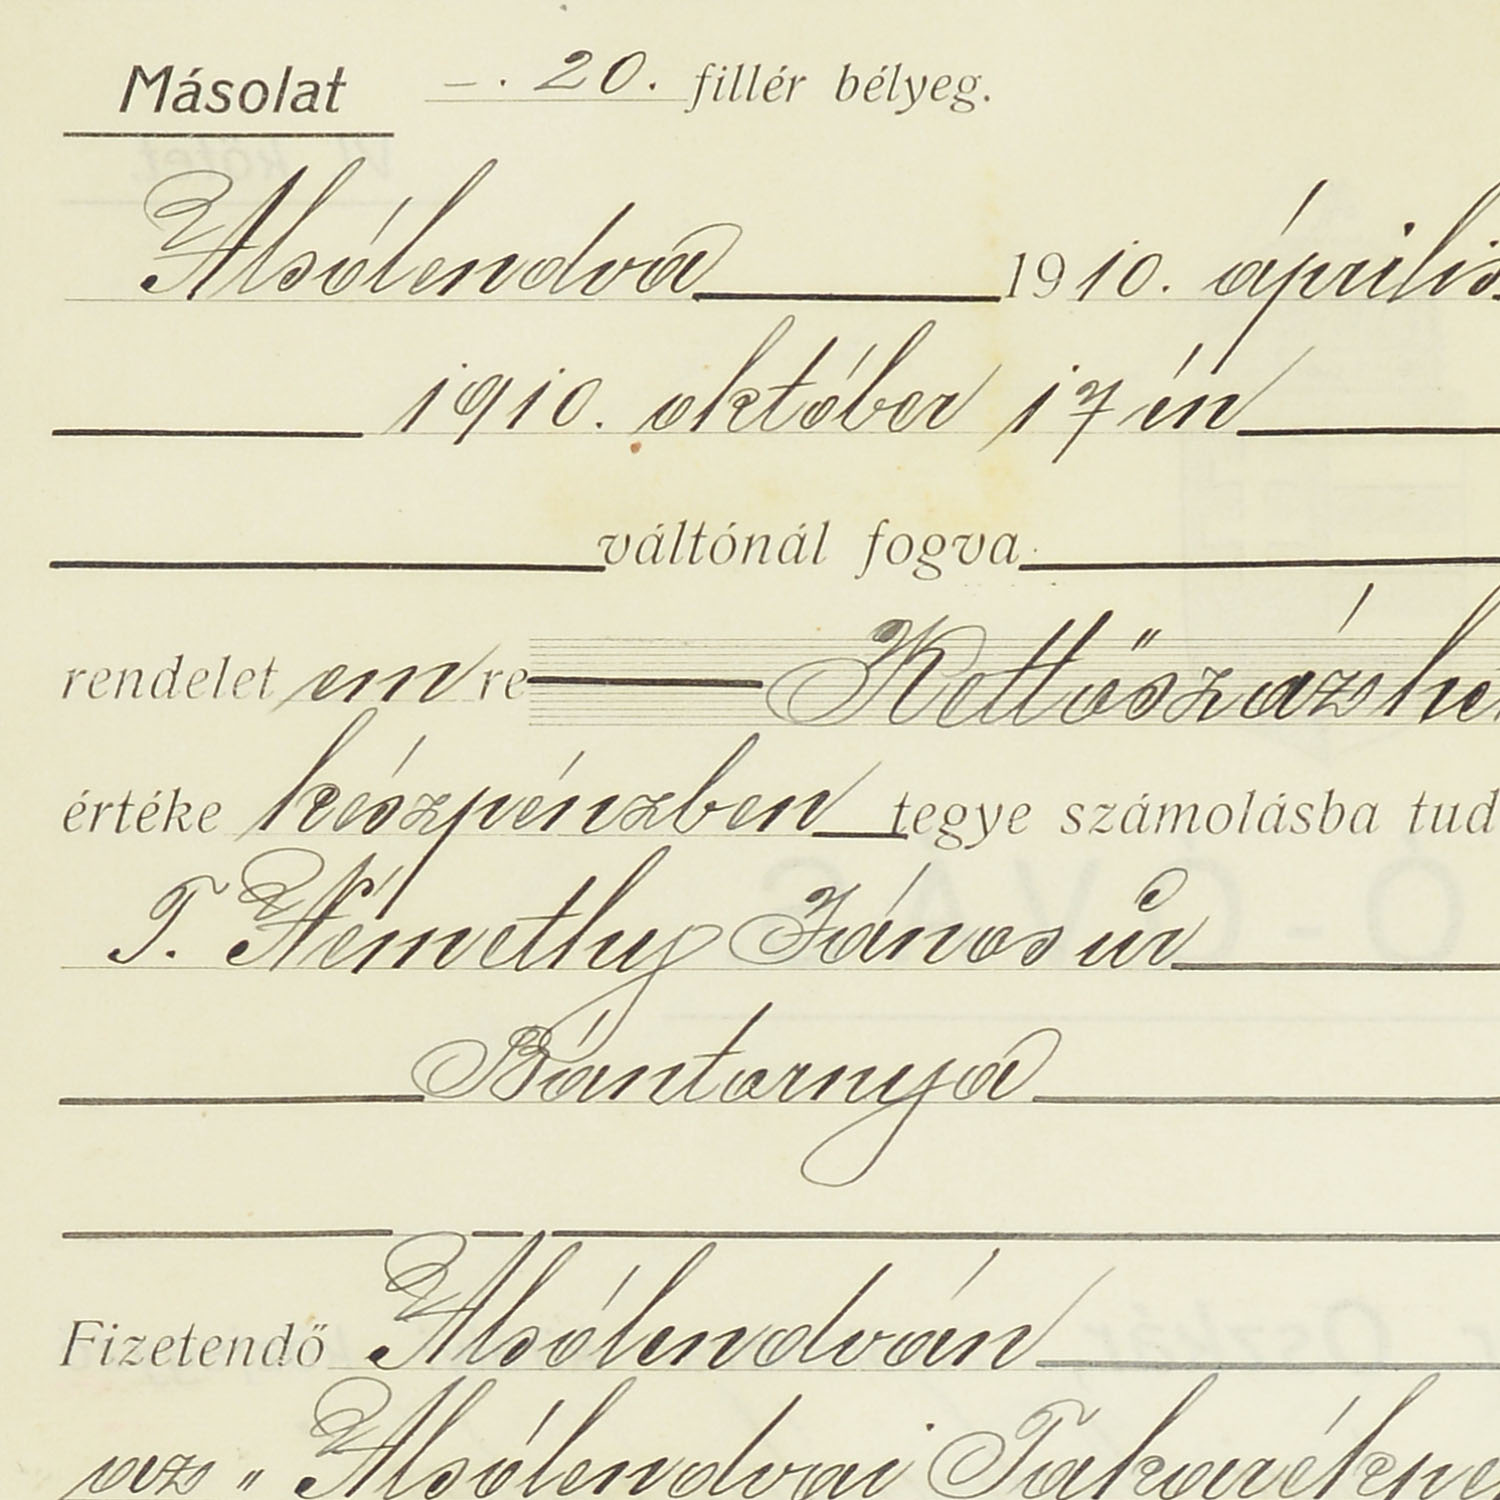 Másolat –. 20. fillér bélyeg.
Alsólendva 1910. április
1910. október 17 én
váltónál fogva
rendelet em re Kettőszázhe
értéke készpénzben tegye számolásba tud
T. Némethy János úr
Bántornya
Fizetendő Alsólendván
az „Alsólendvai Takarékpé